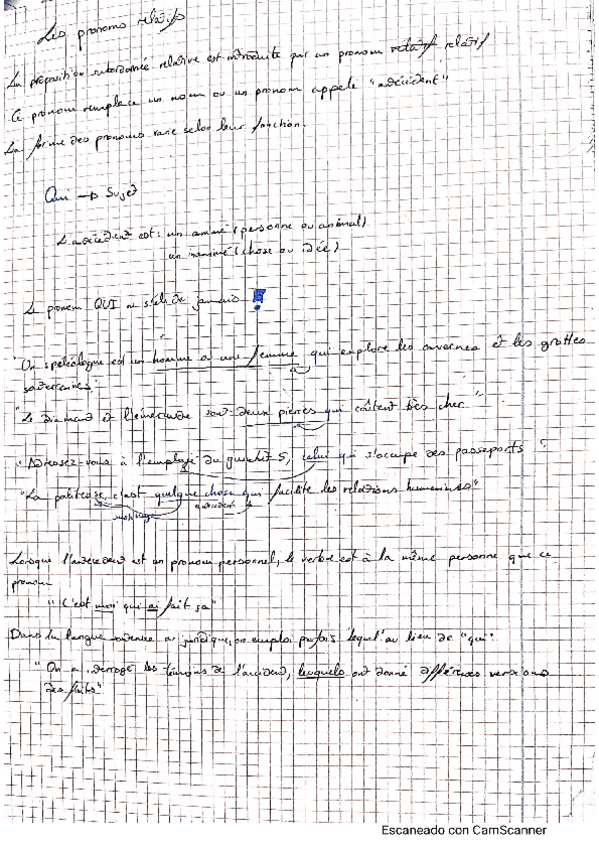 Les pronoms relatifs
La proposition subordonnée relative est introduite par un pronom relatif relatif
Ce pronom remplace un nom ou un pronom appelé "antécédent"
La forme des pronoms varie selon leur fonction.
Qui → Sujet
L'antécédent est: un animé (personne ou animal)
un inanimé (chose ou idée)
Le pronom QUI ne s'élide jamais !
"Un spéléologue est un homme ou une femme qui explore les cavernes et les grottes
souterraines."
"Le diamant et l'émeraude sont deux pierres qui coûtent très cher"
"Adressez-vous à l'employé du guichet 5, celui qui s'occupe des passeports"
"La politesse, c'est quelque chose qui facilite les relations humaines"
antécédent
Lorsque l'antécédent est un pronom personnel, le verbe est à la même personne que ce
pronom
"C'est moi qui ai fait ça"
Dans la langue ou juridique, on emploi parfois "lequel" au lieu de "qui":
"On a interrogé les témoins de l'accident, lesquels ont donné différentes versions
des faits"
Escaneado con CamScanner